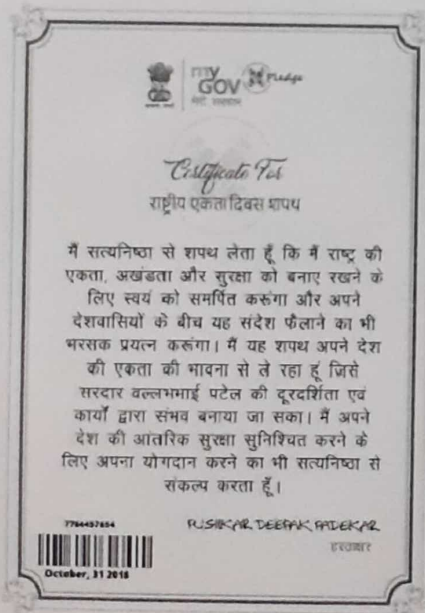 my
GOV Pledge
मेरी सरकार
Certificate For
राष्ट्रीय एकता दिवस शपथ
मैं सत्यनिष्ठा से शपथ लेता हूँ कि मैं राष्ट्र की
एकता, अखंडता और सुरक्षा को बनाए रखने के
लिए स्वयं को समर्पित करूंगा और अपने
देशवासियों के बीच यह संदेश फैलाने का भी
भरसक प्रयत्न करूंगा। मैं यह शपथ अपने देश
की एकता की भावना से ले रहा हूं जिसे
सरदार वल्लभभाई पटेल की दूरदर्शिता एवं
कार्यों द्वारा संभव बनाया जा सका। मैं अपने
देश की आंतरिक सुरक्षा सुनिश्चित करने के
लिए अपना योगदान करने का भी सत्यनिष्ठा से
संकल्प करता हूँ।
7764457654
PUSHKAR DEEPAK PADEKAR
हस्ताक्षर
October, 31 2018